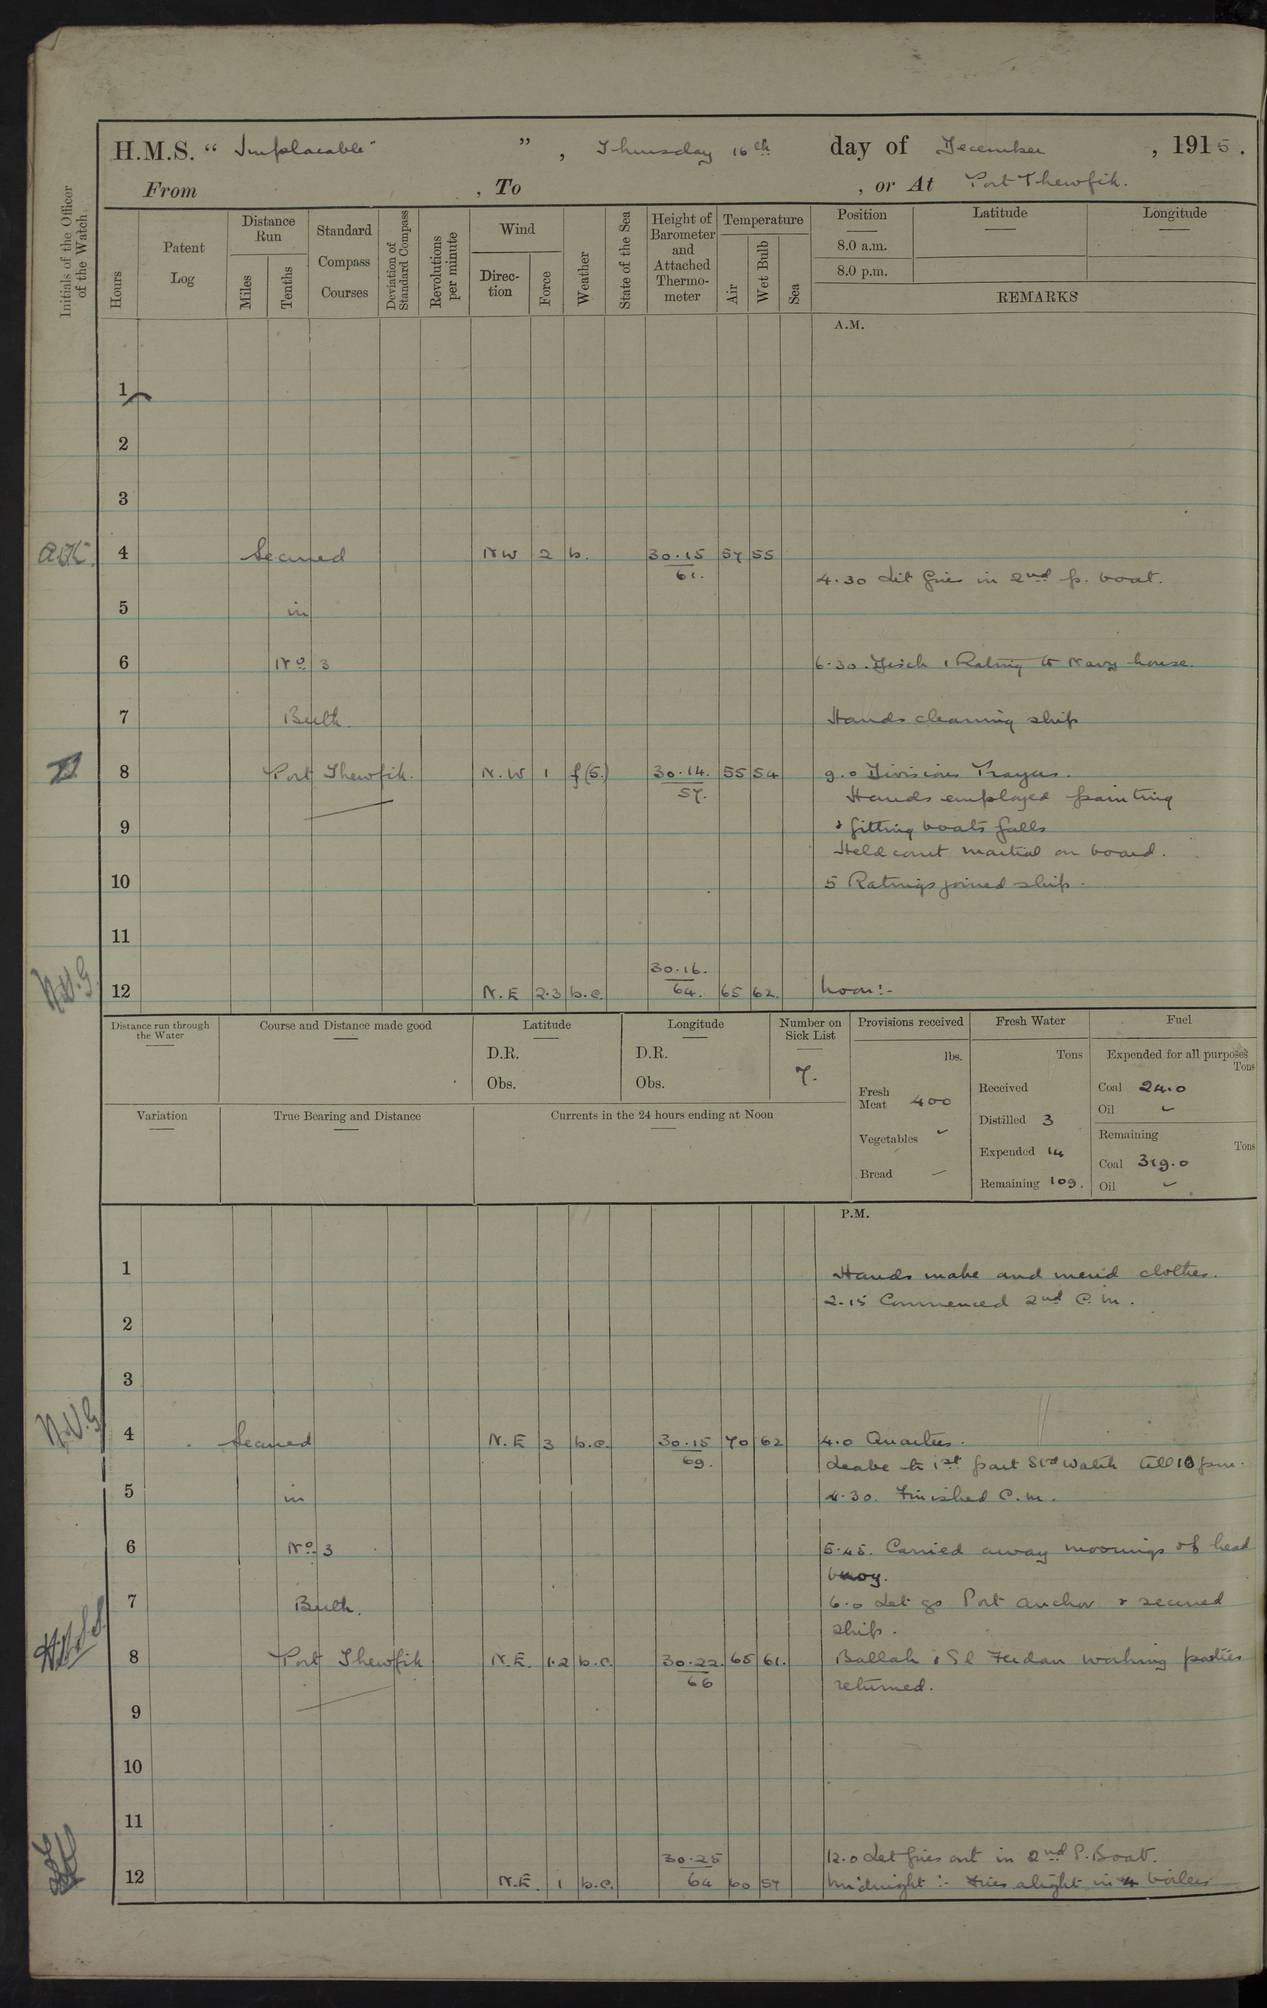 H.M.S. “ Implacable ” , Thursday 16th day of December , 1915 .
From , To , or At Port Thewfik.
Initials of the Officer of the Watch.
Hours
Patent Log
Distance Run
Miles
Tenths
Standard Compass Courses
Deviation of Standard Compass
Revolutions per minute
Wind
Direc-tion
Force
Weather
State of the Sea
Height of Barometer and Attached Thermo-meter
Temperature
Air
Wet Bulb
Sea
Position
Latitude
Longitude
8.0 a.m.
8.0 p.m.
REMARKS
A.M.
1
2
3
4 Secured N W 2 b. 30.15 57 55
61.
4.30 Lit fires in 2nd p. boat.
5 in
6 No 3 6.30. Disch 1 Rating to Navy house.
7 Berth. Hands cleaning ship
8 Port Thewfik. N.W 1 f(5.) 30.14. 55 54 9.0 Divisions Prayers.
57. Hands employed painting
9 & fitting boats falls
Held court martial on board.
10 5 Ratings joined ship.
11
30.16.
12 N.E 2.3 b.c. 64. 65 62. Noon:-
Distance run through the Water
Course and Distance made good
Latitude
D.R.
Obs.
Longitude
D.R.
Obs.
Number on Sick List
7.
Provisions received
lbs.
Fresh Meat 400
Vegetables
Bread —
Fresh Water
Tons
Received
Distilled 3
Expended 14
Remaining 109.
Fuel
Expended for all purposes
Tons
Coal 24.0
Oil
Remaining
Tons
Coal 319.0
Oil
Variation
True Bearing and Distance
Currents in the 24 hours ending at Noon
P.M.
1 Hands make and mend clothes.
2.15 Commenced 2nd C.M.
2
3
N.V.G.
4 Secured N.E 3 b.c. 30.15 70 62 4.0 Quarters.
69. Leave to 1st part Stbd Watch till 10 pm.
5 in 4.30. Finished C.M.
6 No 3 5.45. Carried away moorings of head
buoy.
7 Berth. 6.0 Let go Port anchor & secured
ship.
8 Port Thewfik N.E. 1.2 b.c. 30.22. 65 61. Ballah & El Ferdan working parties
66 returned.
9
10
11
30.25 12.0 Let fires out in 2nd P. Boat.
12 N.E. 1 b.c. 64 60 57 Midnight :- Fires alight in 4 boilers